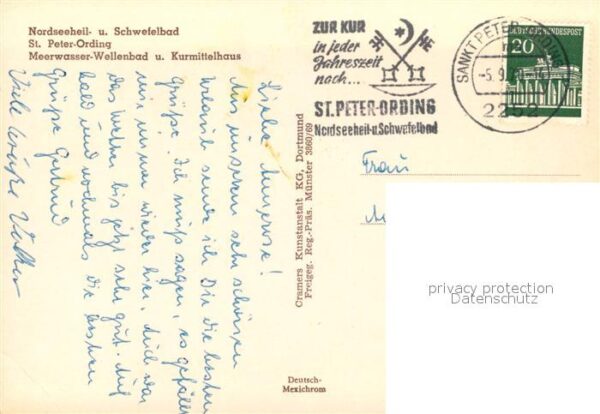 Nordseeheil- u. Schwefelbad
St. Peter-Ording
Meerwasser-Wellenbad u. Kurmittelhaus
ZUR KUR
in jeder
Jahreszeit
nach...
ST. PETER-ORDING
Nordseeheil-u.Schwefelbad
SANKT PETER-ORDING
-5.9.
2252
DEUTSCHE BUNDESPOST
20
Frau
Liebe
Aus unserem sehr schönen
sende ich Dir die besten
Grüße. Ich muß sagen, es gefällt
mir immer wieder hier. Auch war
das Wetter bis jetzt sehr gut. Auf
bald und nochmals die besten
Grüße Gertrud
Viele Grüße
Cramers Kunstanstalt KG, Dortmund
Freigeg. Reg.-Präs. Münster 3860/69
Deutsch-
Mexichrom
privacy protection
Datenschutz